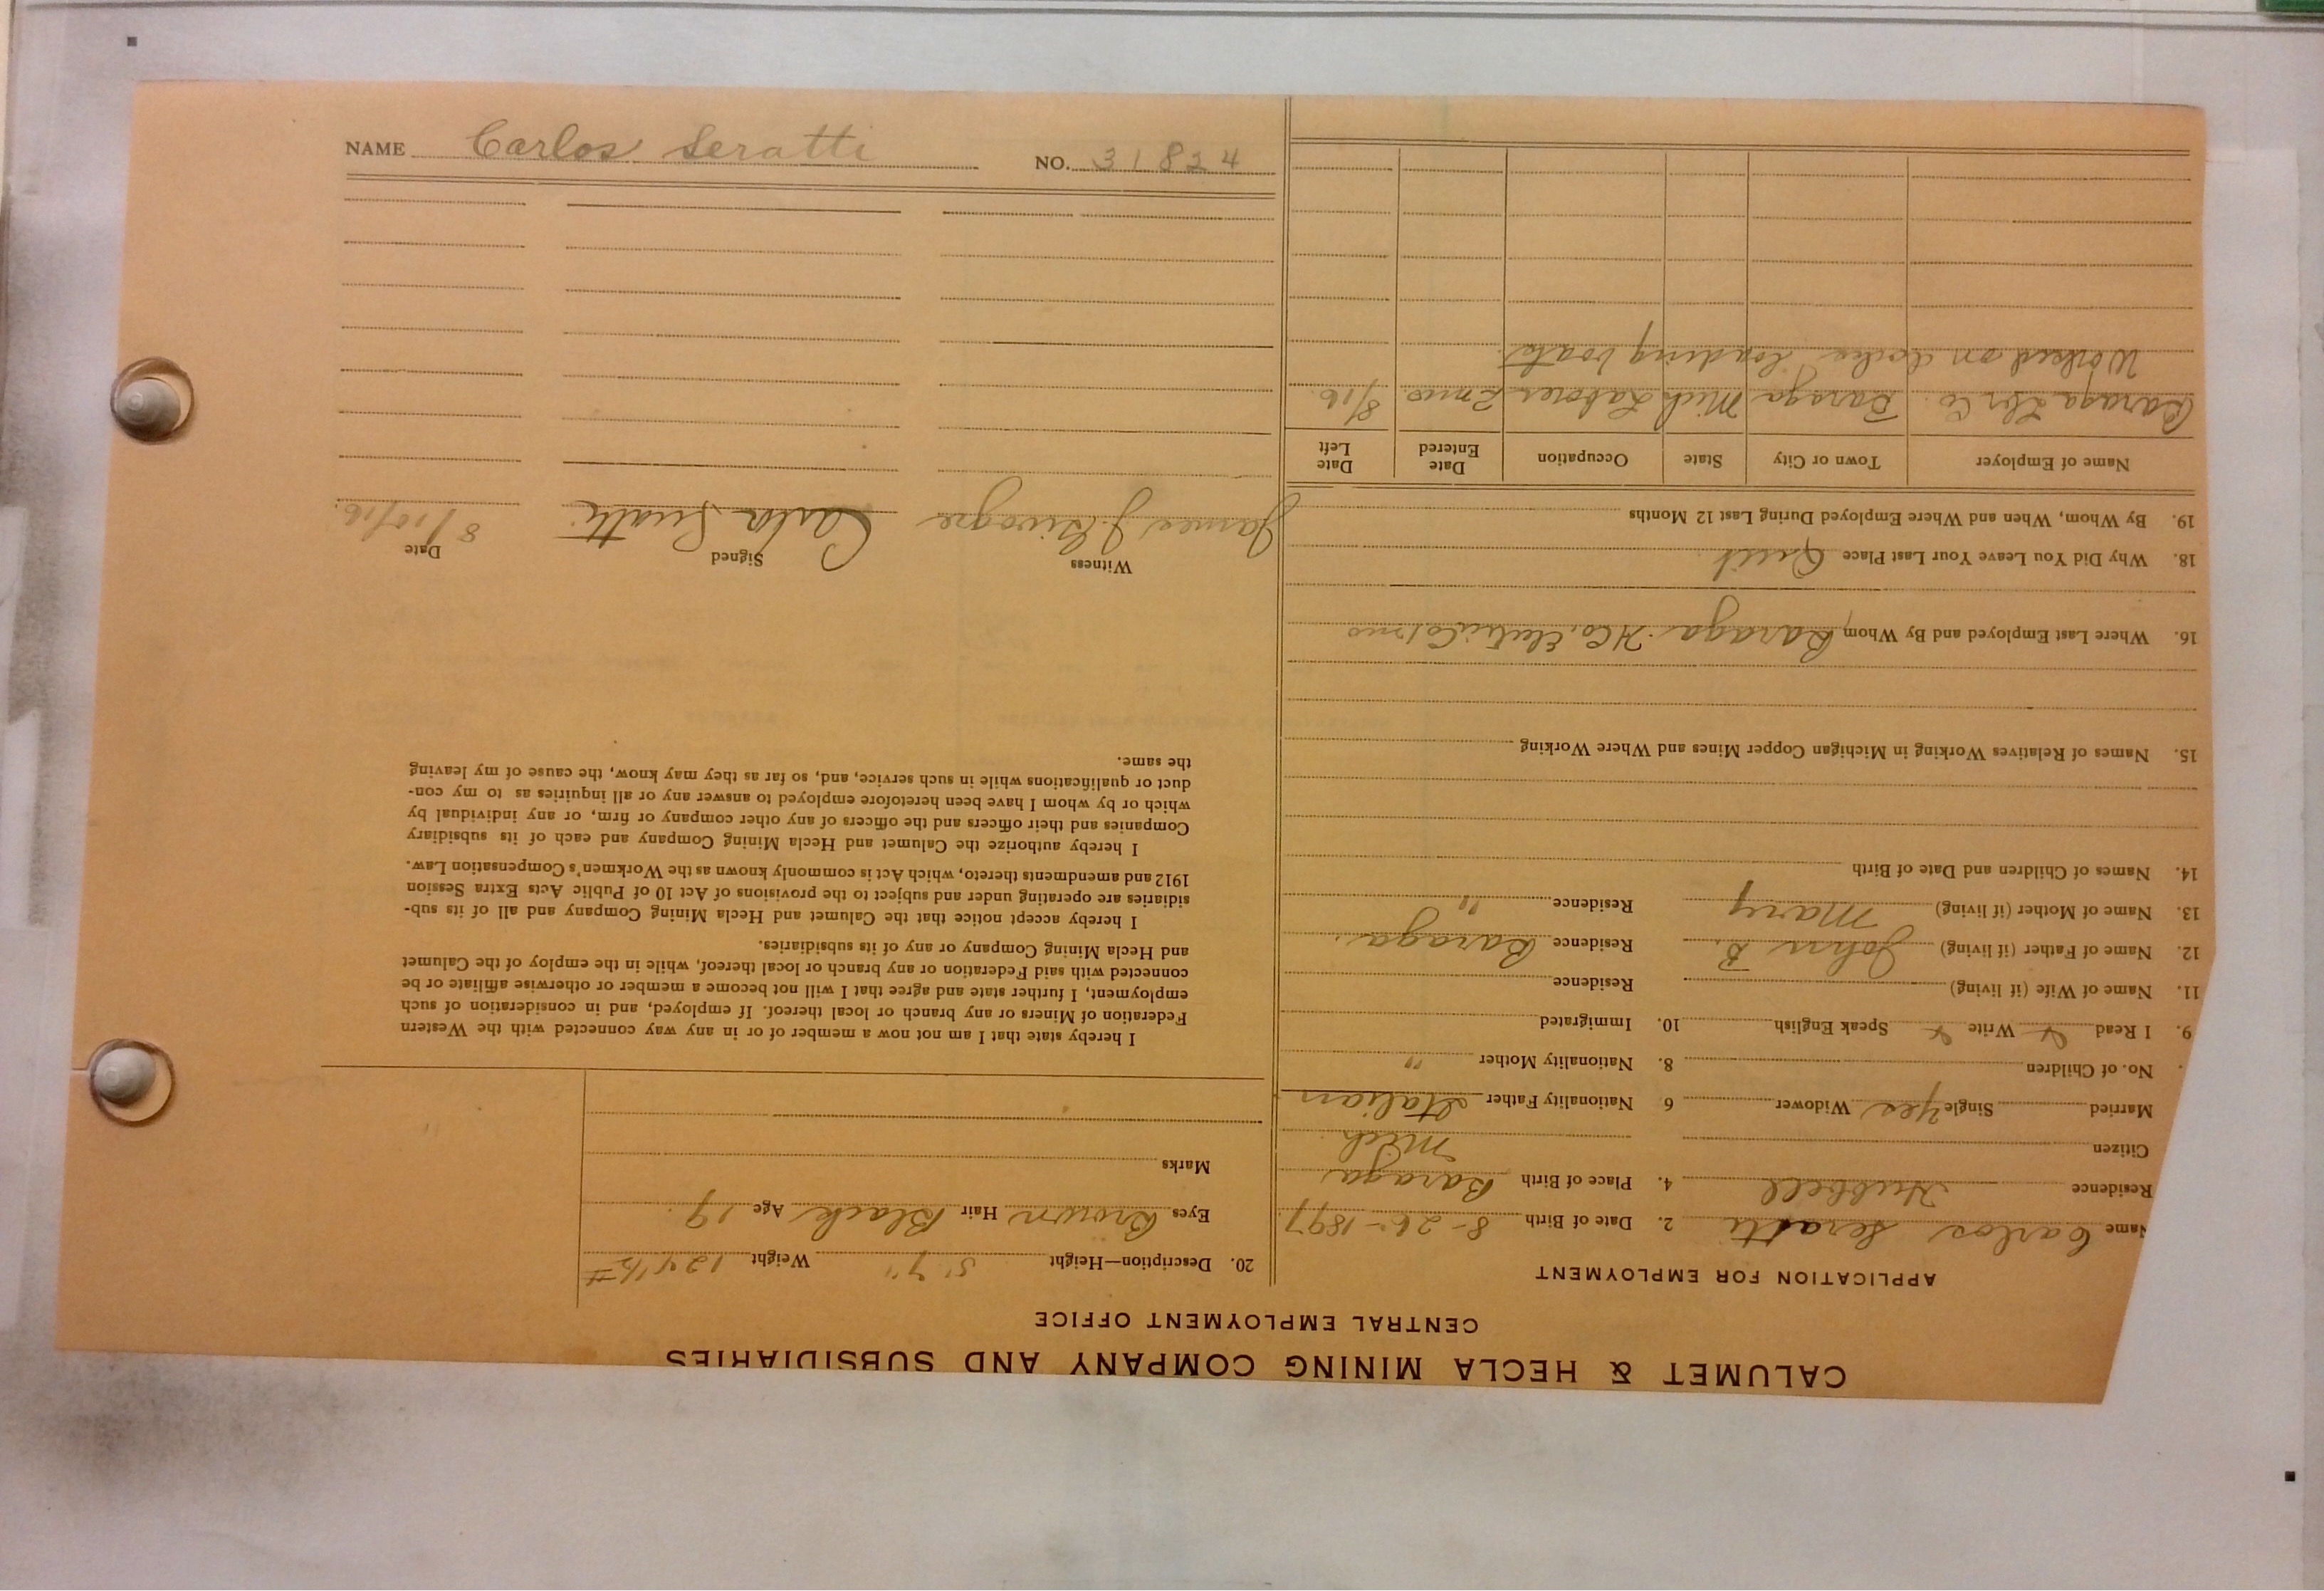 CALUMET & HECLA MINING COMPANY AND SUBSIDIARIES
CENTRAL EMPLOYMENT OFFICE
APPLICATION FOR EMPLOYMENT
Name Carlos Seratti 2. Date of Birth 8-26-1897
Residence Hubbell 4. Place of Birth Baraga
Citizen Mich
Married Single Yes Widower 6 Nationality Father Italian
No. of Children 8. Nationality Mother "
9. I Read Write Speak English 10. Immigrated
11. Name of Wife (if living) Residence
12. Name of Father (if living) John B. Residence Baraga.
13. Name of Mother (if living) Mary Residence "
14. Names of Children and Date of Birth
15. Names of Relatives Working in Michigan Copper Mines and Where Working
16. Where Last Employed and By Whom Baraga. H Co. Electric Co 1 mo
18. Why Did You Leave Your Last Place Quit
19. By Whom, When and Where Employed During Last 12 Months
Name of Employer Town or City State Occupation Date Entered Date Left
Baraga Lbr Co. Baraga Mich Laborer 2 mos. 8/16.
Worked on docks loading boats.
20. Description—Height 5' 7" Weight 124 1/2 #
Eyes Brown Hair Black Age 19
Marks
I hereby state that I am not now a member of or in any way connected with the Western
Federation of Miners or any branch or local thereof. If employed, and in consideration of such
employment, I further state and agree that I will not become a member or otherwise affiliate or be
connected with said Federation or any branch or local thereof, while in the employ of the Calumet
and Hecla Mining Company or any of its subsidiaries.
I hereby accept notice that the Calumet and Hecla Mining Company and all of its sub-
sidiaries are operating under and subject to the provisions of Act 10 of Public Acts Extra Session
1912 and amendments thereto, which Act is commonly known as the Workmen's Compensation Law.
I hereby authorize the Calumet and Hecla Mining Company and each of its subsidiary
Companies and their officers and the officers of any other company or firm, or any individual by
which or by whom I have been heretofore employed to answer any or all inquiries as to my con-
duct or qualifications while in such service, and, so far as they may know, the cause of my leaving
the same.
Witness Signed Date
James J. Seratti 8/10/16.
NAME Carlos Seratti NO. 31824